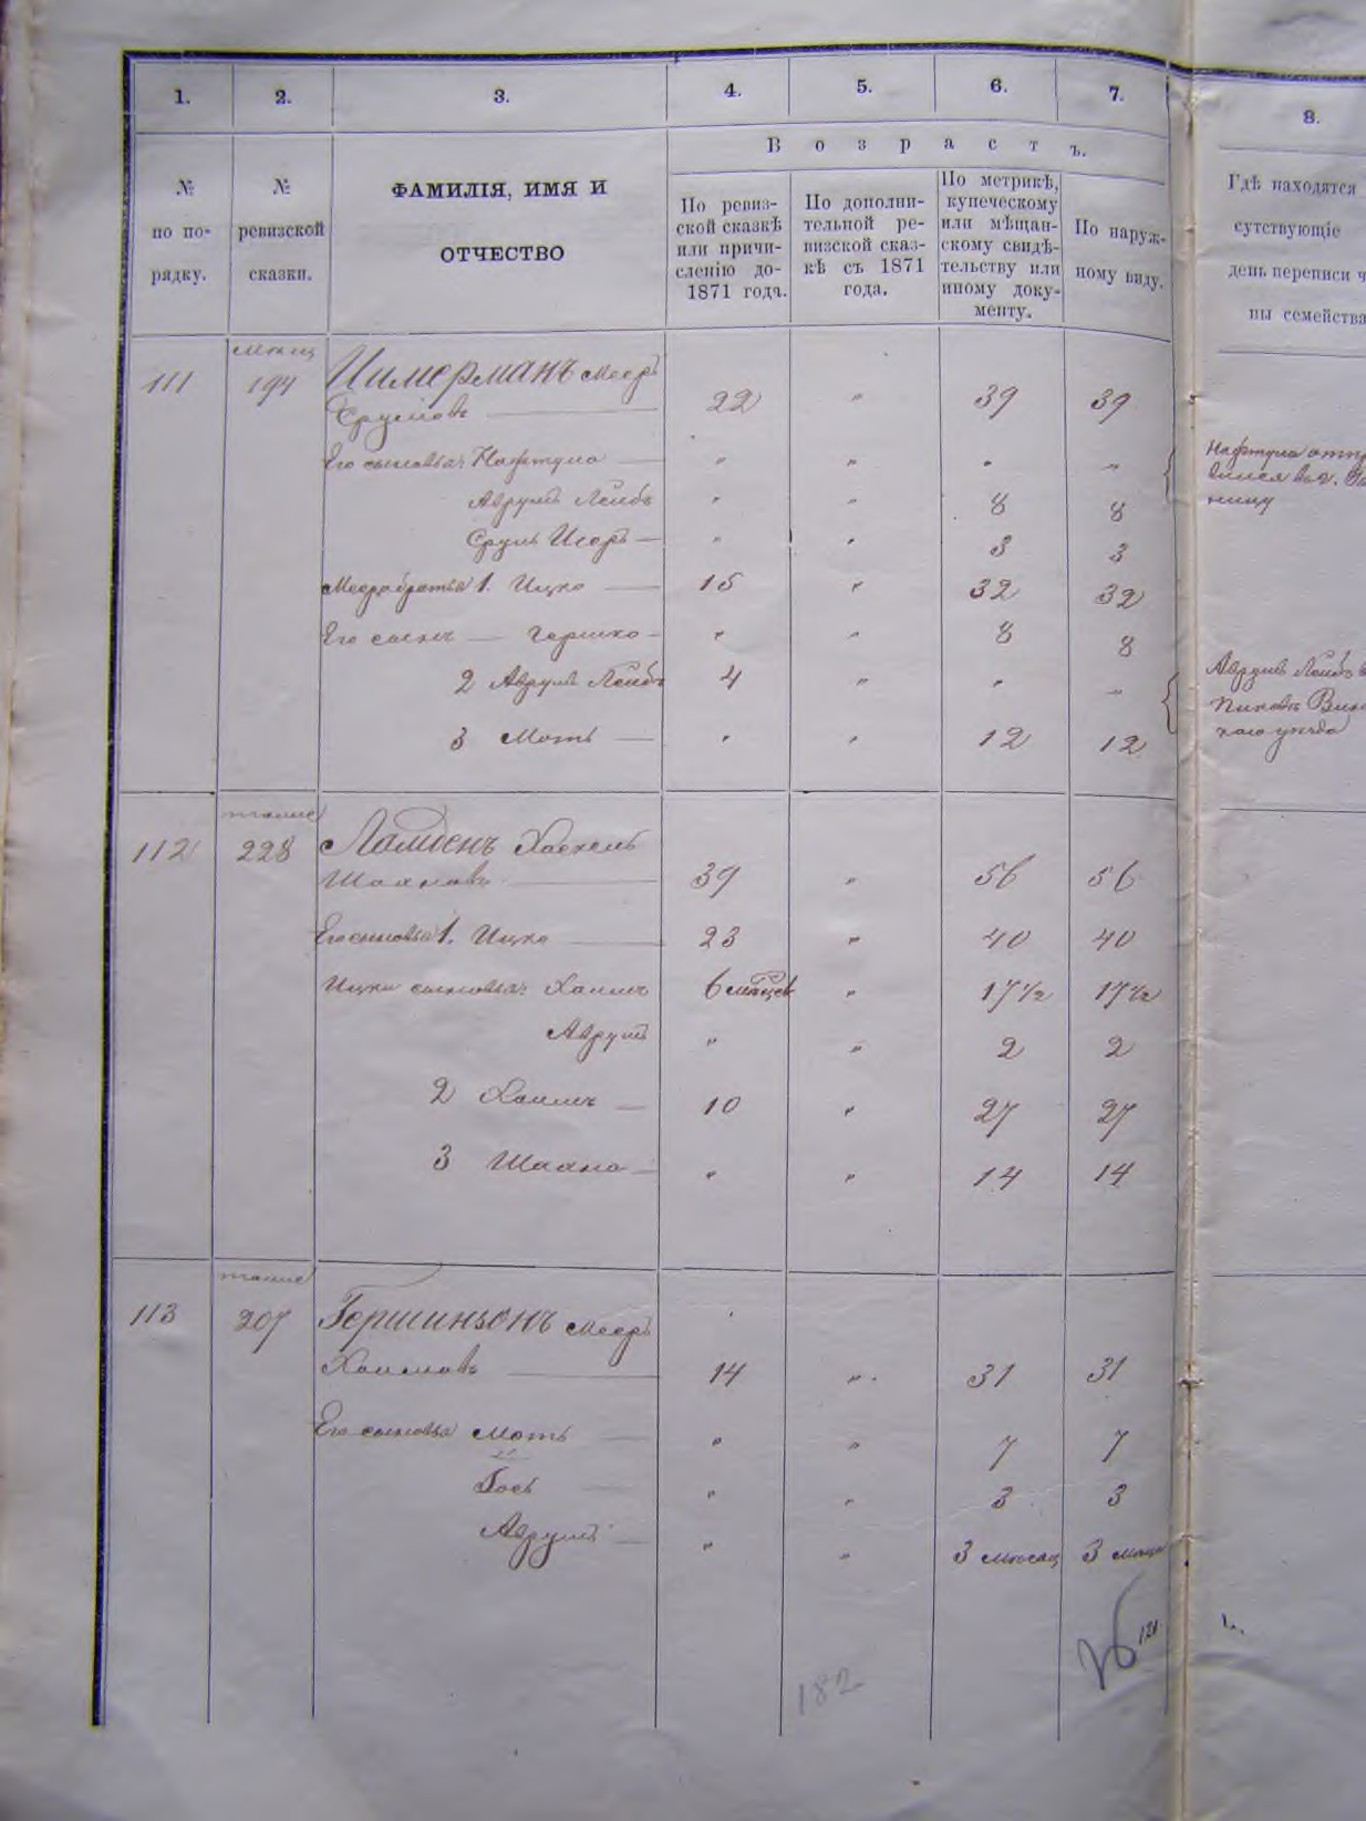 1. 2. 3. 4. 5. 6. 7. 8.
Возрастъ.
№ по по-рядку.
№ ревизской сказки.
ФАМИЛІЯ, ИМЯ И
ОТЧЕСТВО
По ревиз-
ской сказкѣ
или причи-
сленію до
1871 года.
По дополни-
тельной ре-
визской сказ-
кѣ съ 1871
года.
По метрикѣ,
купеческому
или мѣщан-
скому свидѣ-
тельству или
иному доку-
менту.
По наруж-
ному виду.
Гдѣ находятся
сутствующіе
день переписи ч
ны семейства
111 194 Цимерманъ Мееръ
Сруловъ 22 " 39 39
Его сыновья: Нафтула " " " "
Аврумъ Лейбъ " " 8 8
Сруль " " 3 3
Меера братья 1. Ицко 15 " 32 32
Его сынъ Гершко " " 8 8
2 Аврумъ Лейбъ 4 " " "
3 Моть " " 12 12
Нафтула
Аврумъ Лейбъ
112 228 Ламбенъ Хаскель
39 " 56 56
Его сыновья 1. Ицко 23 " 40 40
Ицки сыновья: Хаимъ 6 " 17½ 17½
Аврумъ " " 2 2
2 Хаимъ 10 " 27 27
3 " " 14 14
113 207 Мееръ
Хаимовъ 14 " 31 31
Его сыновья Моть " " 7 7
" " 3 3
Аврумъ " " 3 месяц 3
182
121